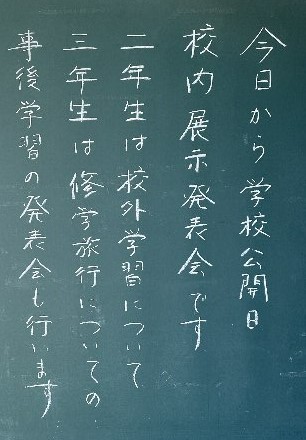 今日から学校公開日
校内展示発表会です
二年生は校外学習について
三年生は修学旅行についての
事後学習の発表会も行います